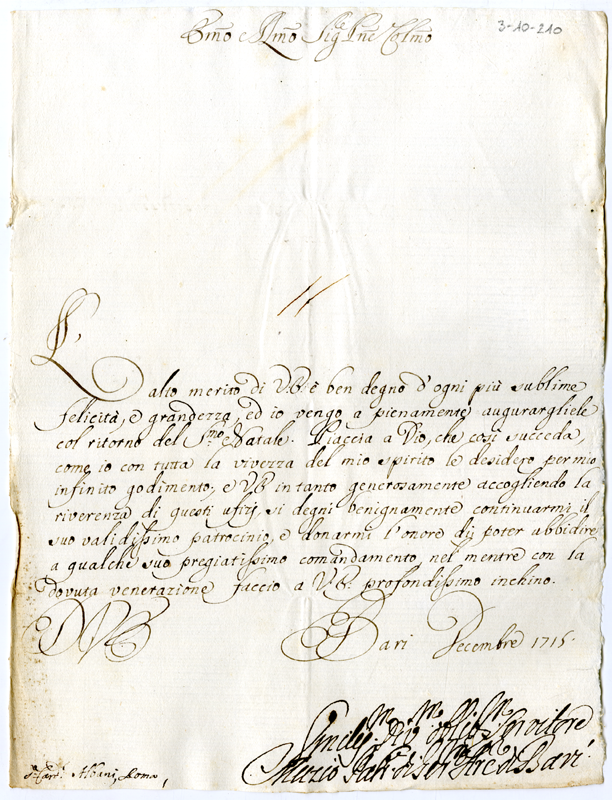 Emo e Rmo Sigr Pne Colmo
3-10-210
L'alto merito di V.E. è ben degno d'ogni più sublime
felicità, e grandezza, ed io vengo a pienamente augurargliele
col ritorno del Smo Natale. Piaccia a Dio, che così succeda,
come io con tutta la vivezza del mio spirito le desidero per mio
infinito godimento; e V.E. intanto generosamente accogliendo la
riverenza di questi ufizj, si degni benignamente continuarmi il
suo validissimo patrocinio, e donarmi l'onore di poter ubbidire
a qualche suo pregiatissimo comandamento nel mentre con la
dovuta venerazione faccio a V.E. profondissimo inchino.
D V E
Bari Decembre 1715.
Servitore
di Bari
Albani, Roma,